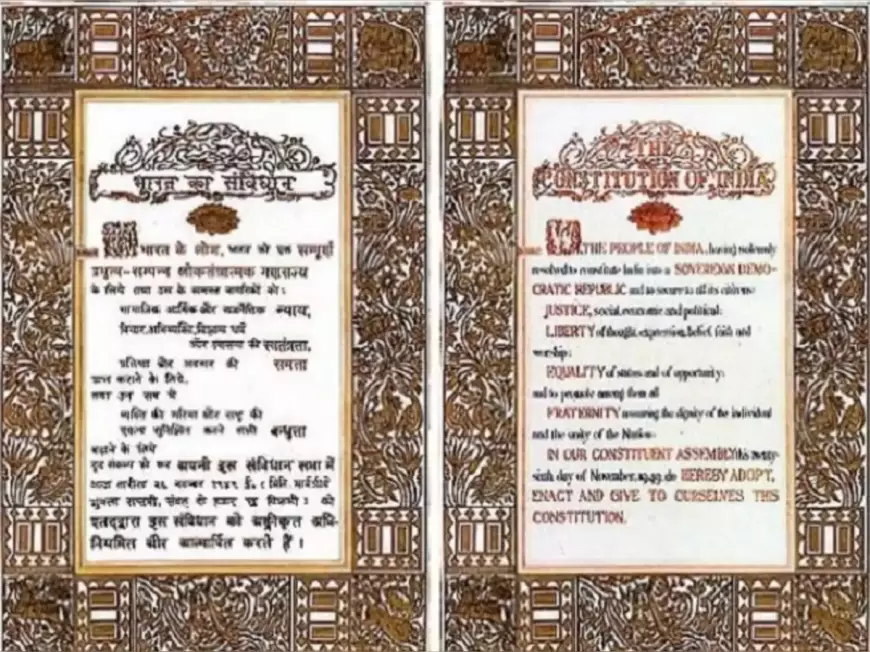 भारत का संविधान
भारत के लोग, भारत को एक सम्पूर्ण
प्रभुत्व-सम्पन्न लोकतंत्रात्मक गणराज्य
के लिये तथा उस के समस्त नागरिकों को:
सामाजिक आर्थिक और राजनैतिक न्याय,
विचार, अभिव्यक्ति, विश्वास, धर्म
और उपासना की स्वतंत्रता,
प्रतिष्ठा और अवसर की समता
प्राप्त कराने के लिये,
तथा उन सब में
व्यक्ति की गरिमा और राष्ट्र की
एकता सुनिश्चित करने वाली बन्धुता
बढ़ाने के लिये
दृढ़ संकल्प हो कर अपनी इस संविधान सभा में
आज तारीख २६ नवम्बर १९४९ ई० (मिति मार्गशीर्ष
शुक्ला सप्तमी, संवत् दो हजार छः विक्रमी) को
एतद्द्वारा इस संविधान को अङ्गीकृत, अधि-
नियमित और आत्मार्पित करते हैं।
THE
CONSTITUTION OF INDIA
WE, THE PEOPLE OF INDIA, having solemnly
resolved to constitute India into a SOVEREIGN DEMO-
CRATIC REPUBLIC and to secure to all its citizens:
JUSTICE, social, economic and political;
LIBERTY of thought, expression, belief, faith and
worship;
EQUALITY of status and of opportunity;
and to promote among them all
FRATERNITY assuring the dignity of the individual
and the unity of the Nation;
IN OUR CONSTITUENT ASSEMBLY this twenty-
sixth day of November, 1949, do HEREBY ADOPT,
ENACT AND GIVE TO OURSELVES THIS
CONSTITUTION.